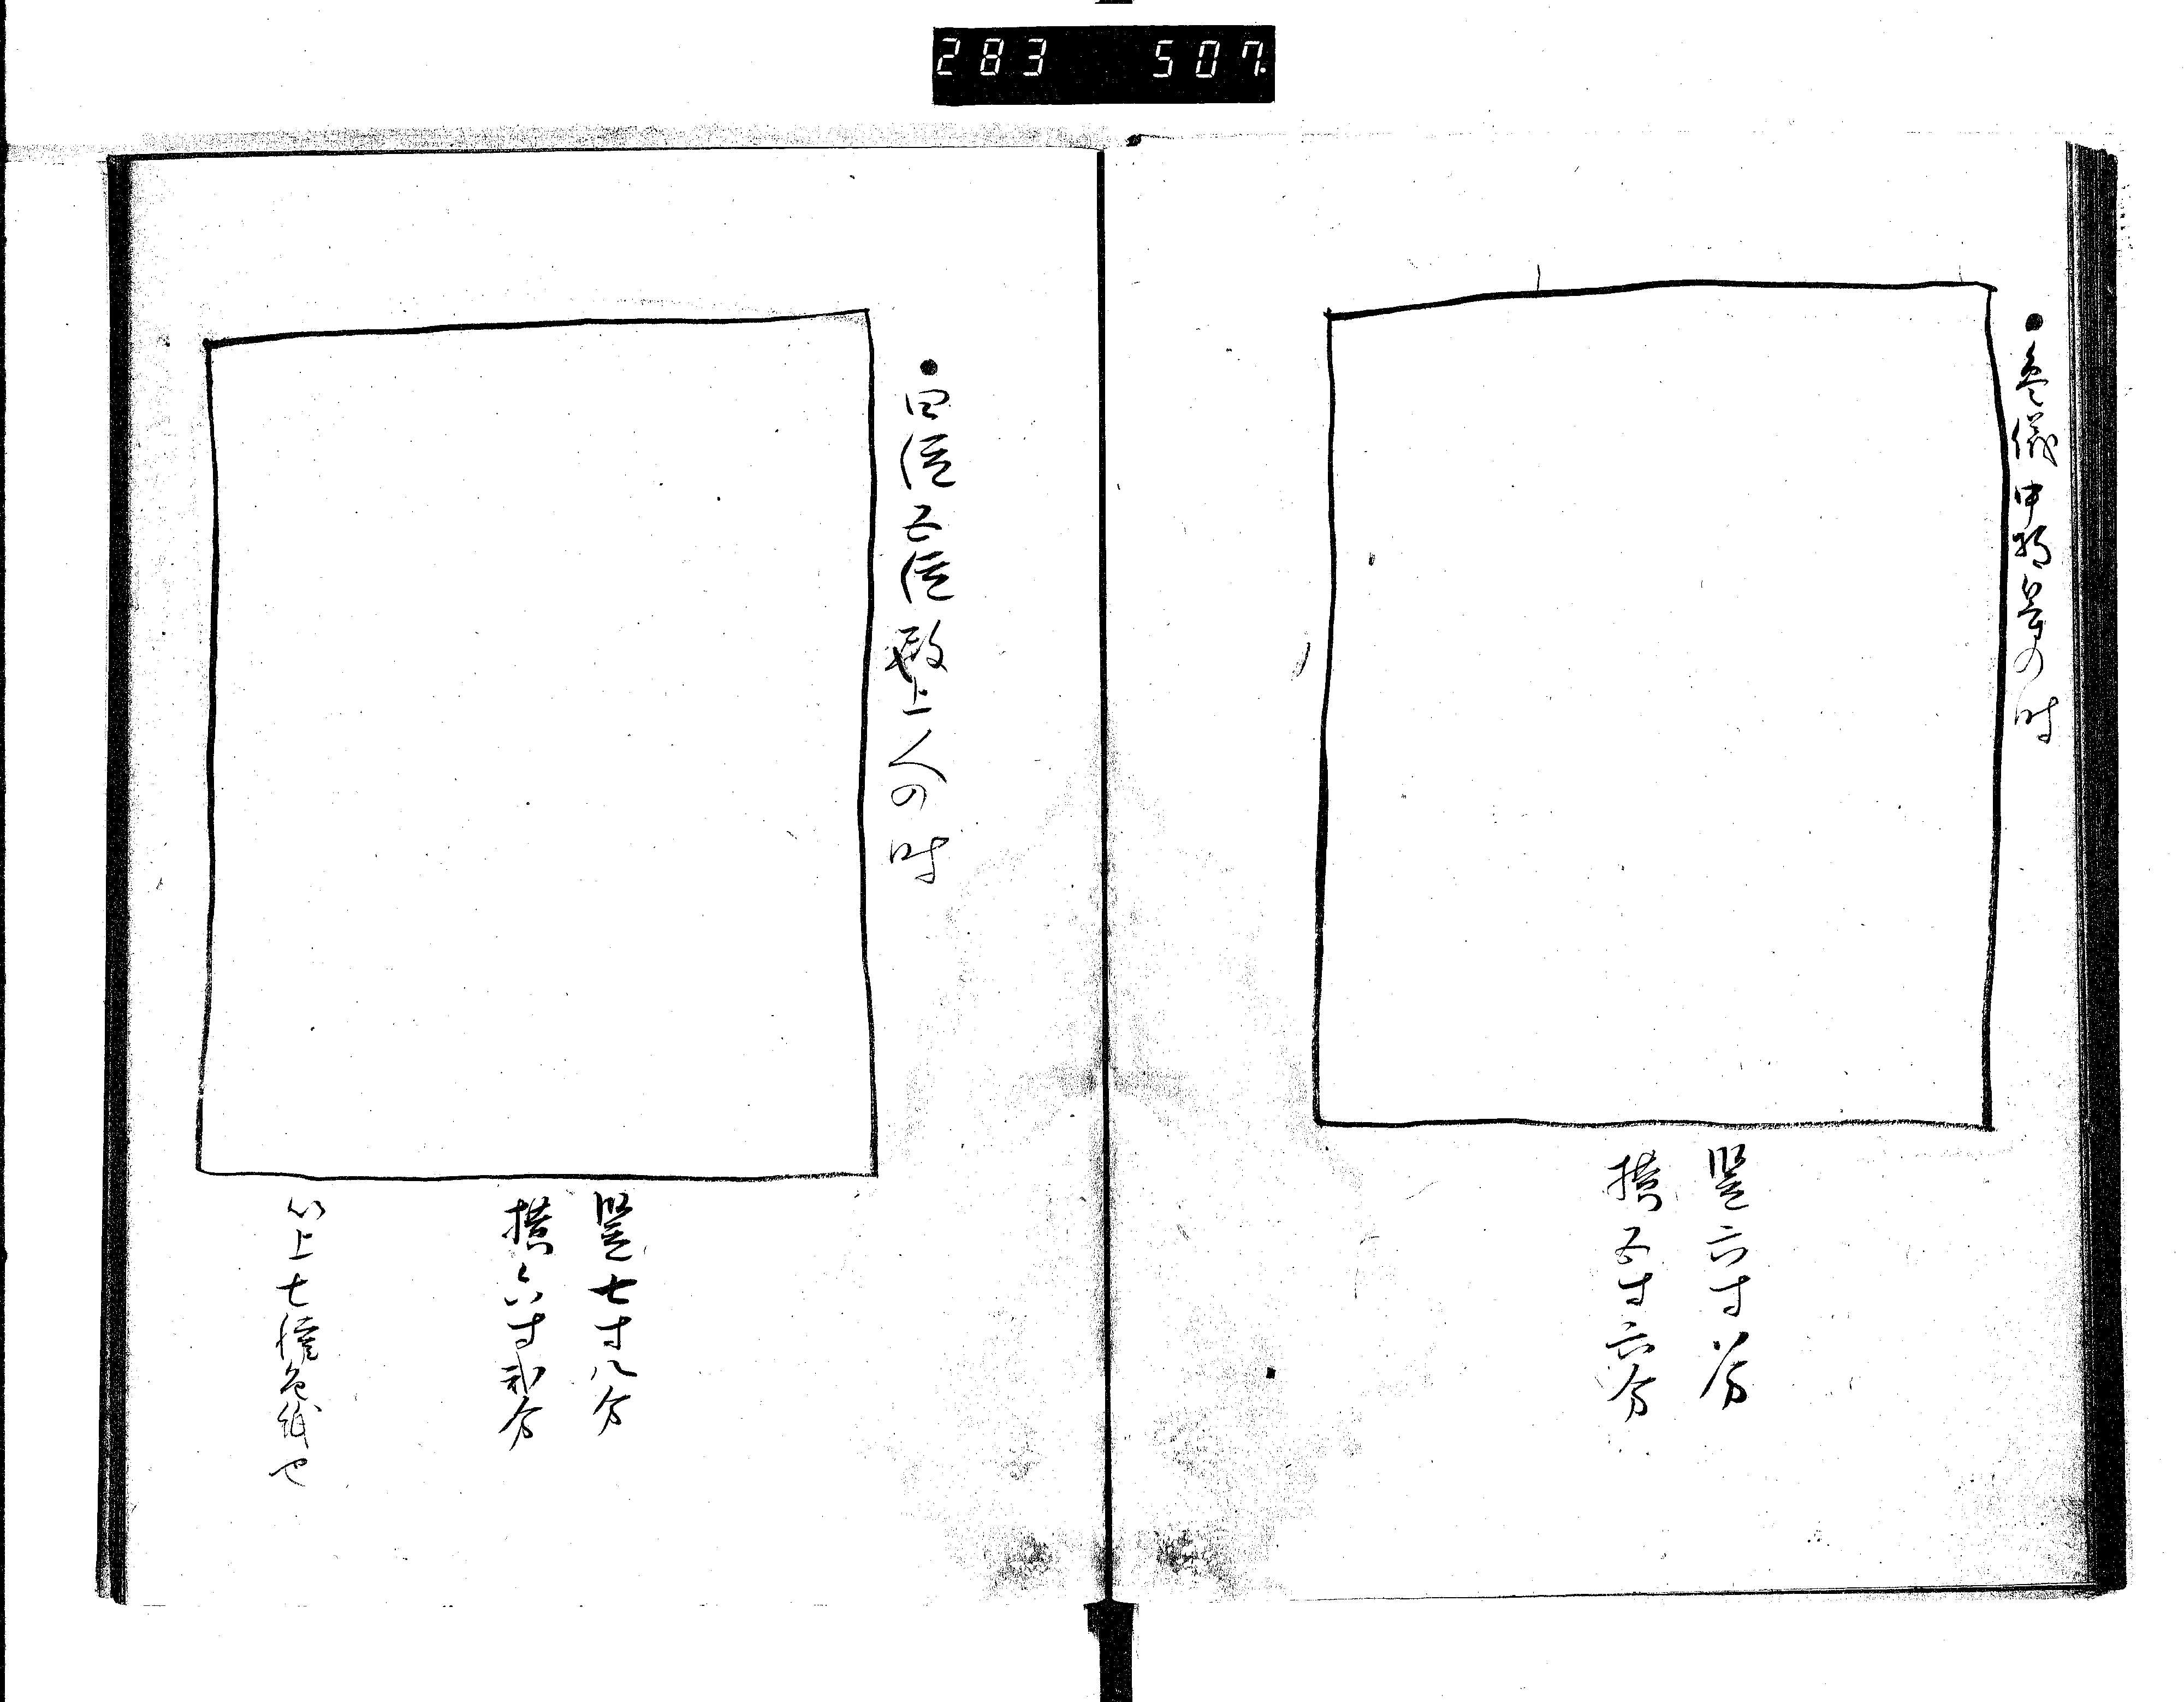 283 507
●参儀中将等の時
竪六寸八分
横五寸六分
●四位五位殿上人の時
竪七寸八分
横六寸弐分
以上七様色紙也